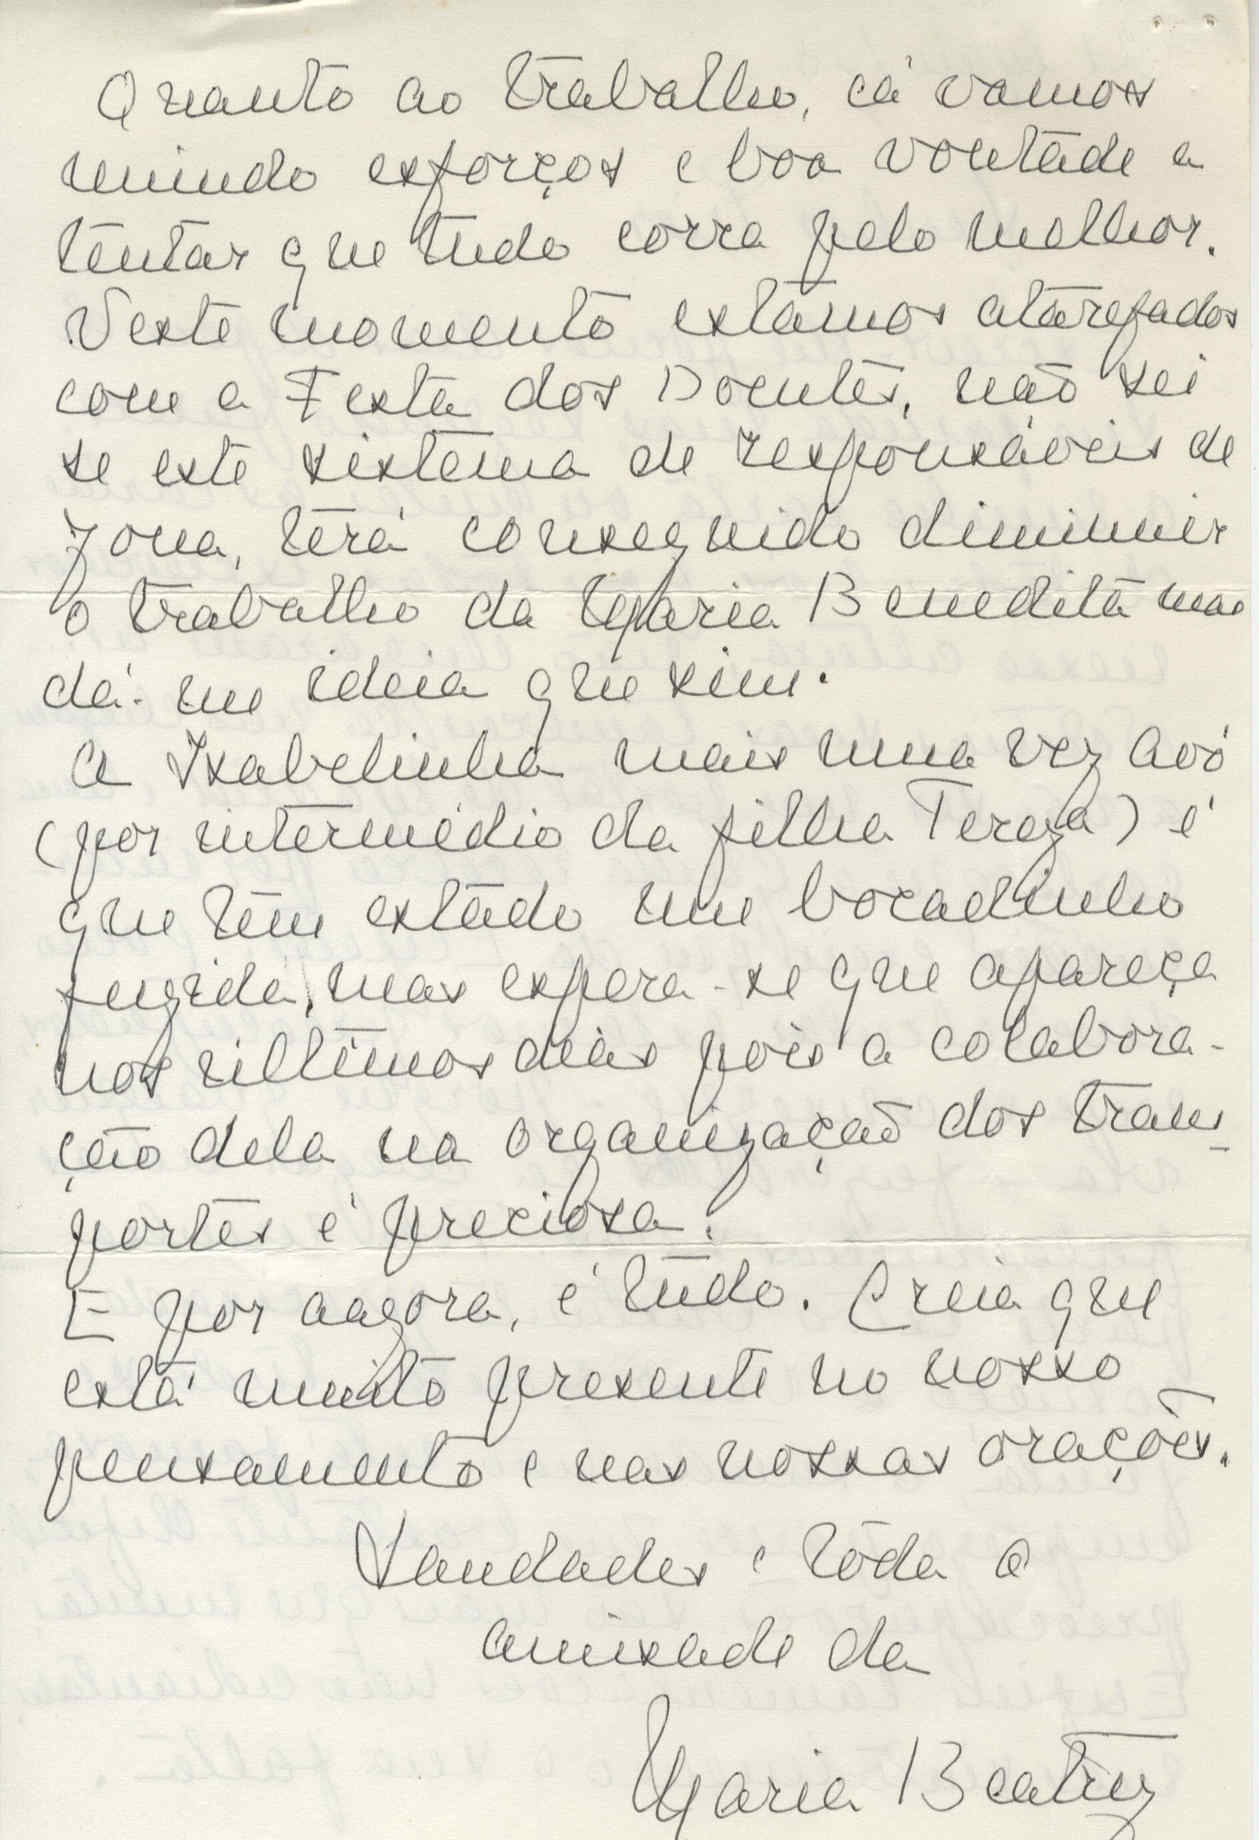 Quanto ao trabalho, cá vamos
unindo esforços e boa vontade a
tentar que tudo corra pelo melhor.
Neste momento estamos atarefados
com a Festa dos Doentes, não sei
se este sistema de responsáveis de
zona, terá conseguido diminuir
o trabalho da Maria Benedita mas
dá-me ideia que sim.
A Isabelinha mais uma vez avó
(por intermédio da filha Tereza) é
que tem estado um bocadinho
fugida, mas espera-se que apareça
nos últimos dias pois a colabora-
ção dela na organização dos trans-
portes é preciosa.
E por aagora, é tudo. Creia que
está muito presente no nosso
pensamento e nas nossas orações.
Saudades e toda a
amizade da
Maria Beatriz